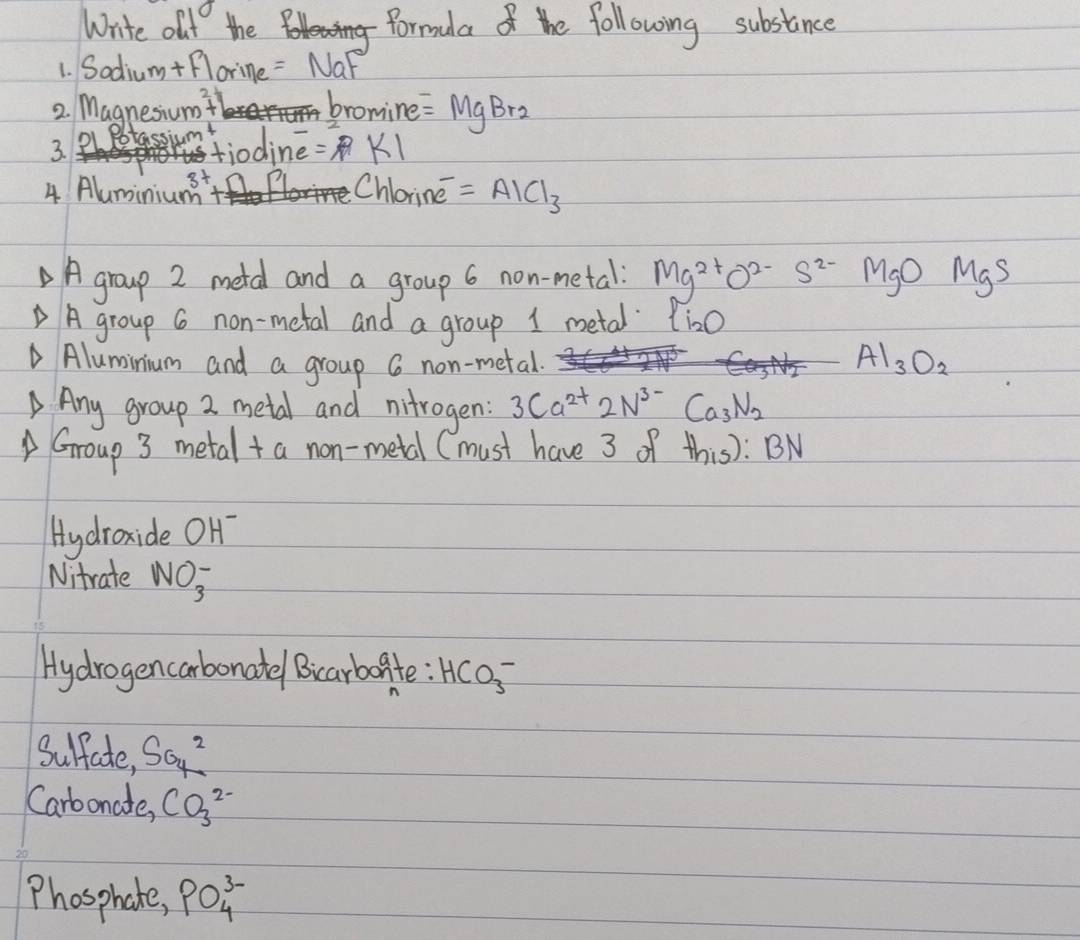 Write out the following formula of the following substance
1. Sodium + Florine = NaF
2. Magnesium²⁺ + bromine⁻ = MgBr₂
3. Potassium⁺ + iodine⁻ = KI
4 Aluminium³⁺ + Florine Chlorine⁻ = AlCl₃
A group 2 metal and a group 6 non-metal: Mg²⁺ O²⁻ S²⁻ MgO MgS
A group 6 non-metal and a group 1 metal: Li₂O
Aluminium and a group 6 non-metal. Ca₃N₂ Al₃O₂
Any group 2 metal and nitrogen: 3Ca²⁺ 2N³⁻ Ca₃N₂
Group 3 metal + a non-metal (must have 3 of this): BN
Hydroxide OH⁻
Nitrate NO₃⁻
15
Hydrogencarbonate/Bicarbonate: HCO₃⁻
Sulfate, SO₄²
Carbonate, CO₃²⁻
20
Phosphate, PO₄³⁻